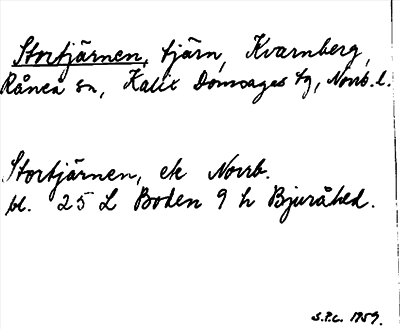 Stortjärnen, tjärn, Kvarnberg,
Råneå sn, Kalix Domsagas tg, Norrb. l.
Stortjärnen, ek Norrb.
bl. 25 L Boden 9 h Bjuråhed.
S.P.C. 1959.